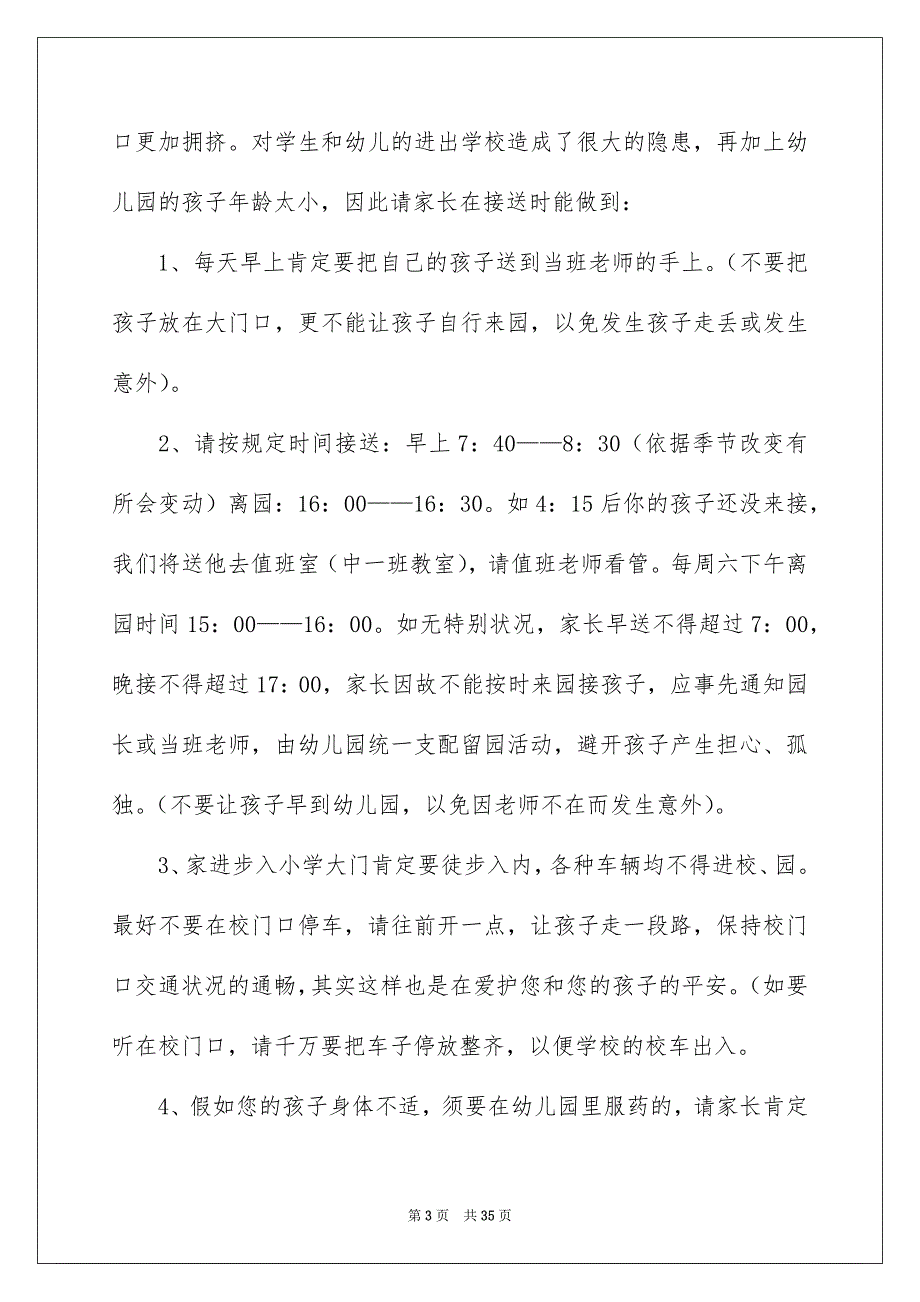 口更加拥挤。对学生和幼儿的进出学校造成了很大的隐患，再加上幼
儿园的孩子年龄太小，因此请家长在接送时能做到：
1、每天早上肯定要把自己的孩子送到当班老师的手上。（不要把
孩子放在大门口，更不能让孩子自行来园，以免发生孩子走丢或发生
意外）。
2、请按规定时间接送：早上 7：40——8：30（依据季节改变有
所会变动）离园：16：00——16：30。如 4：15 后你的孩子还没来接，
我们将送他去值班室（中一班教室），请值班老师看管。每周六下午离
园时间 15：00——16：00。如无特别状况，家长早送不得超过 7：00，
晚接不得超过 17：00，家长因故不能按时来园接孩子，应事先通知园
长或当班老师，由幼儿园统一支配留园活动，避开孩子产生担心、孤
独。（不要让孩子早到幼儿园，以免因老师不在而发生意外）。
3、家进步入小学大门肯定要徒步入内，各种车辆均不得进校、园。
最好不要在校门口停车，请往前开一点，让孩子走一段路，保持校门
口交通状况的通畅，其实这样也是在爱护您和您的孩子的平安。（如要
听在校门口，请千万要把车子停放整齐，以便学校的校车出入。
4、假如您的孩子身体不适，须要在幼儿园里服药的，请家长肯定
第 3 页 共 35 页